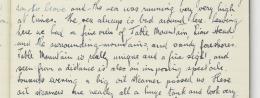 and the sea was running very very high
at times. The sea always is bad around here. Leaving
here we had a fine view of Table Mountain Lions Head
and the surrounding mountains, and sandy foreshores.
Table Mountain is really unique and a fine sight and
seen from a distance is also an imposing spectacle
towards evening a big oil steamer passed us these
oil steamers are really all a huge tank and look very